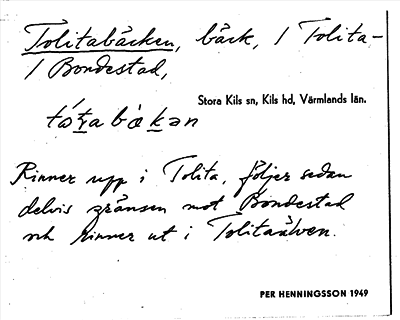 Tolitabäcken, bäck, / Tolita-
/ Bondestad,
Stora Kils sn, Kils hd, Värmlands län.
Rinner upp i Tolita, följer sedan
delvis gränsen mot Bondestad
och rinner ut i Tolitaälven.
PER HENNINGSSON 1949